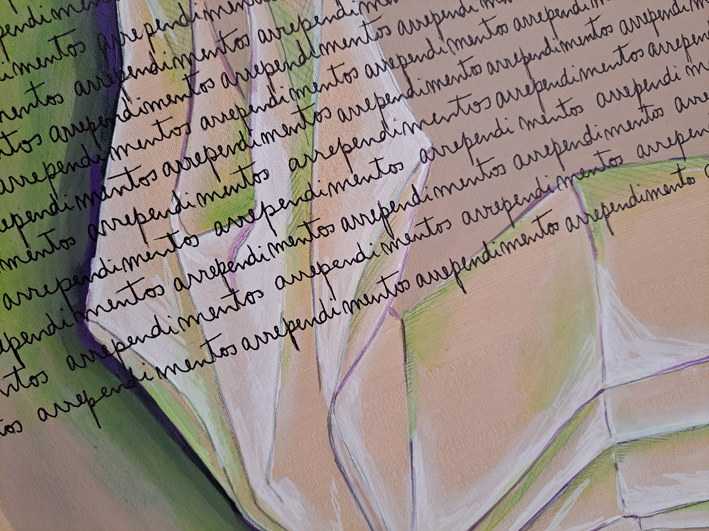 pendimentos arrependimentos
imentos arrependimentos arrependimentos
mentos arrependimentos arrependimentos arrependimentos
ntos arrependimentos arrependimentos arrependimentos arrependimentos
arrependimentos arrependimentos arrependimentos arrependimentos
ependimentos arrependimentos arrependimentos arrependimentos
mentos arrependimentos arrependimentos arrependimentos arrependimentos
arrependimentos arrependimentos arrependimentos arrependimentos
pendimentos arrependimentos arrependimentos arrependimentos arre
ntos arrependimentos arrependimentos arrependimentos arrepen
os arrependimentos arrependimentos arrependimentos arrependimentos a